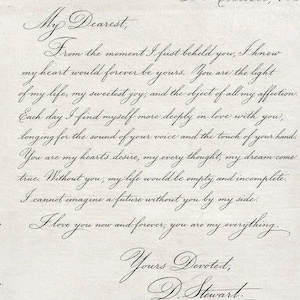 My Dearest,
From the moment I first beheld you, I knew
my heart would forever be yours. You are the light
of my life, my sweetest joy, and the object of all my affection.
Each day I find myself more deeply in love with you,
longing for the sound of your voice and the touch of your hand.
You are my hearts desire, my every thought, my dream come
true. Without you, my life would be empty and incomplete.
I cannot imagine a future without you by my side.
I love you now and forever, you are my everything.
Yours Devoted,
D Stewart